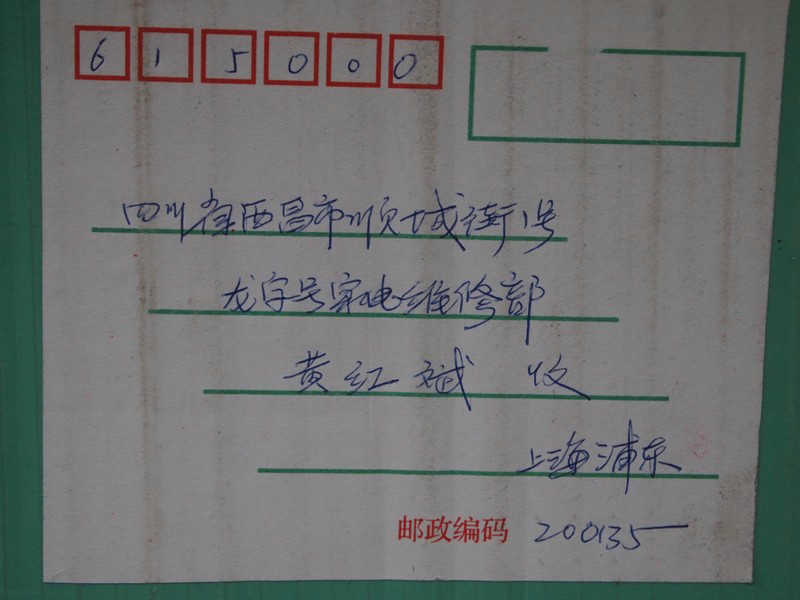 615000
四川省西昌市顺城街1号
龙字号家电维修部
黄红斌 收
上海浦东
邮政编码 200135